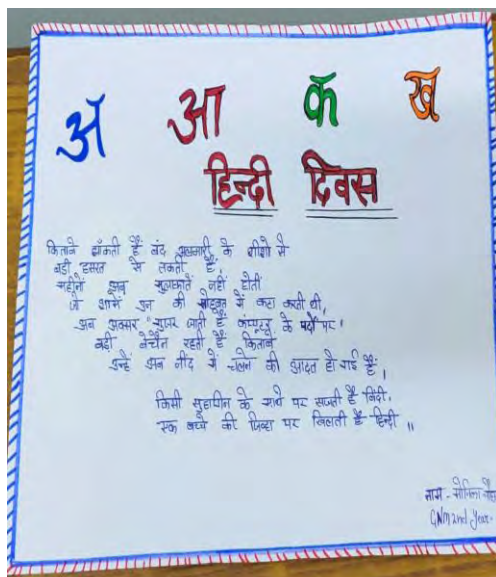 अ आ क ख
हिन्दी दिवस
किताबें झाँकती हैं बंद अलमारी के शीशो से
बड़ी हसरत से तकती हैं,
महीनों अब मुलाकातें नहीं होती
जो शामें इन की सोहबत में कटा करती थी,
अब अक्सर गुजर जाती हैं कंप्यूटर के पर्दों पर।
बड़ी बेचैन रहती हैं किताबें
उन्हें अब नींद में चलने की आदत हो गई हैं।
किसी सुहागीन के माथे पर सजती हैं बिंदी,
एक बच्चे की जिव्हा पर खिलती हैं हिन्दी ॥
नाम -
GNM 2nd Year.